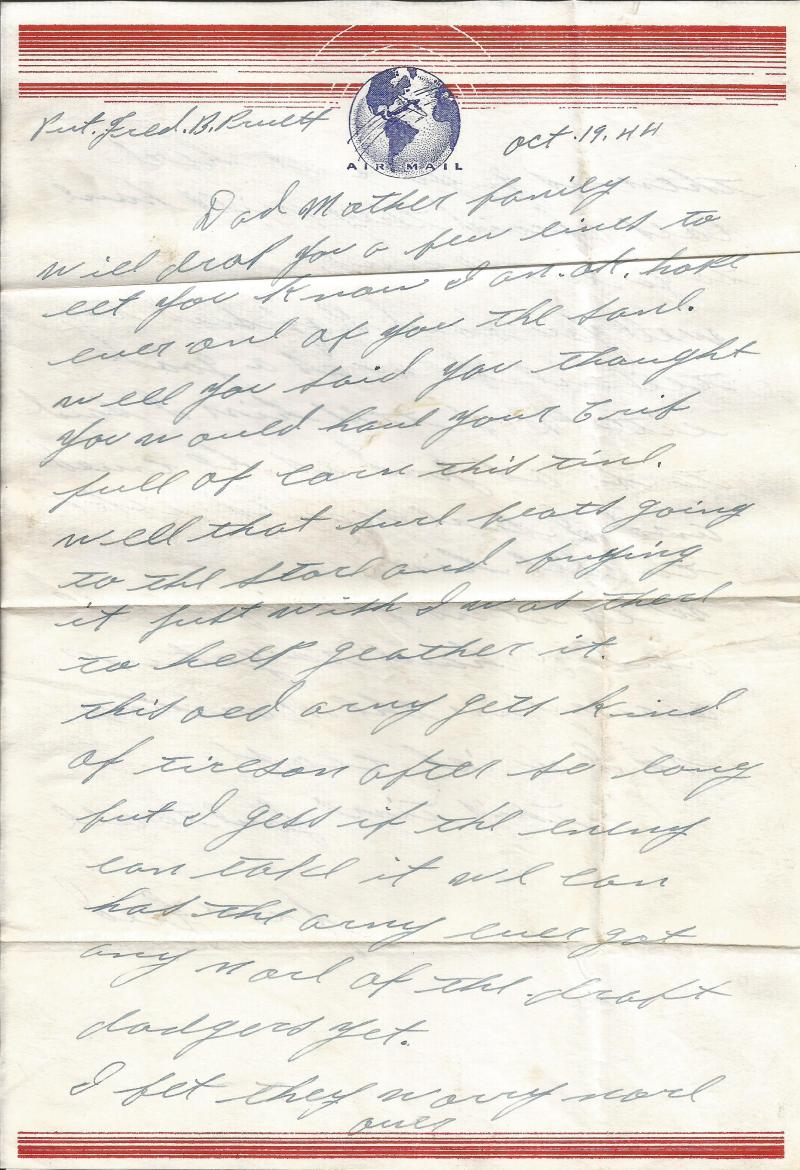 Pvt. Fred. B. Pruett
Oct. 19. 44
AIR MAIL
Dad Mother family
will drop you a few lines to
let you know I am. ok. hope
ever one of you the same.
well you said you thought
you would have your Crib
full of corn this time.
well that sure beats going
to the store and buying
it just wish I was there
to help geather it.
this old army gets kind
of tiresom after so long
but I gess if the enemy
can take it we can
has the army ever got
any more of the draft
dodgers yet.
I bet they worry more
over